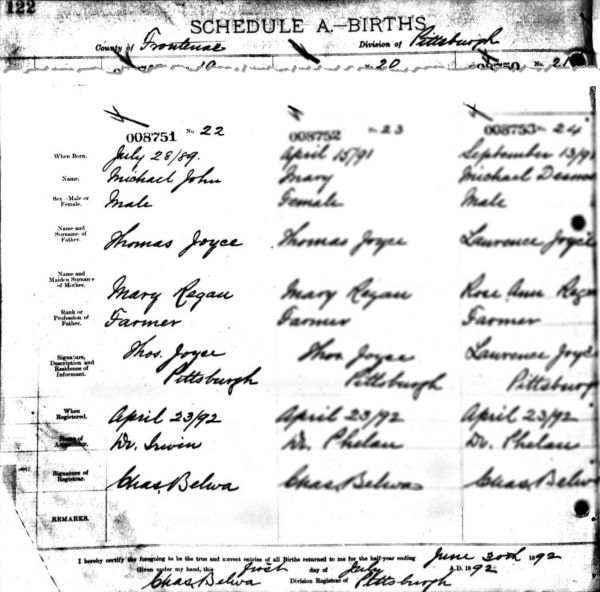 122
SCHEDULE A.—BIRTHS
County of Frontenac Division of Pittsburgh
20 No. 21
008751 No 22 008752 23 008753 24
When Born. July 28/89. April 15/91 September 13/91
Name. Michael John Mary Michael Desmo
Sex—Male or Female. Male Female Male
Name and Surname of Father. Thomas Joyce Thomas Joyce Lawrence Joyce
Name and Maiden Surname of Mother. Mary Regan Mary Regan Rose Ann Rega
Rank or Profession of Father. Farmer Farmer Farmer
Signature, Description and Residence of Informant. Thos. Joyce Thos Joyce Lawrence Joyce
Pittsburgh Pittsburgh Pittsburg
When Registered. April 23/92 April 23/92 April 23/92
Name of Accoucheur. Dr. Irwin Dr. Phelan Dr. Phelan
Signature of Registrar. Chas. Belwa Chas. Belwa Chas. Belwa
REMARKS.
I hereby certify the foregoing to be the true and correct entries of all Births returned to me for the half-year ending June 30th 1892
Given under my hand, this first day of July A.D. 1892
Chas Belwa Division Registrar of Pittsburgh